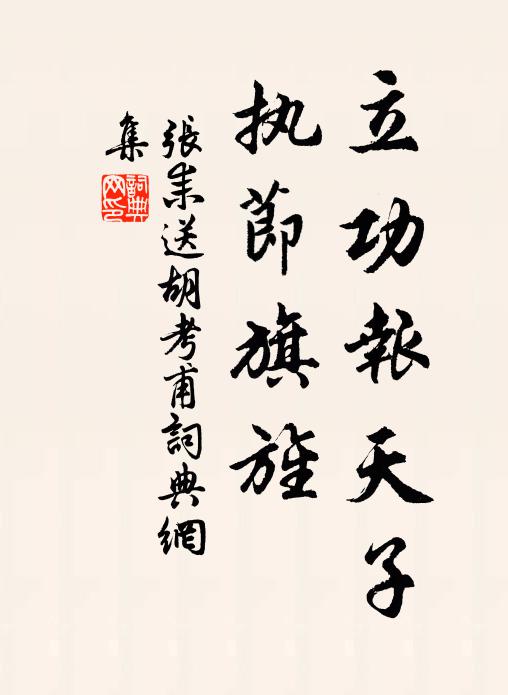 立功報天子
执節旗旌
張耒送胡考甫詞典網
集
詞典
网印